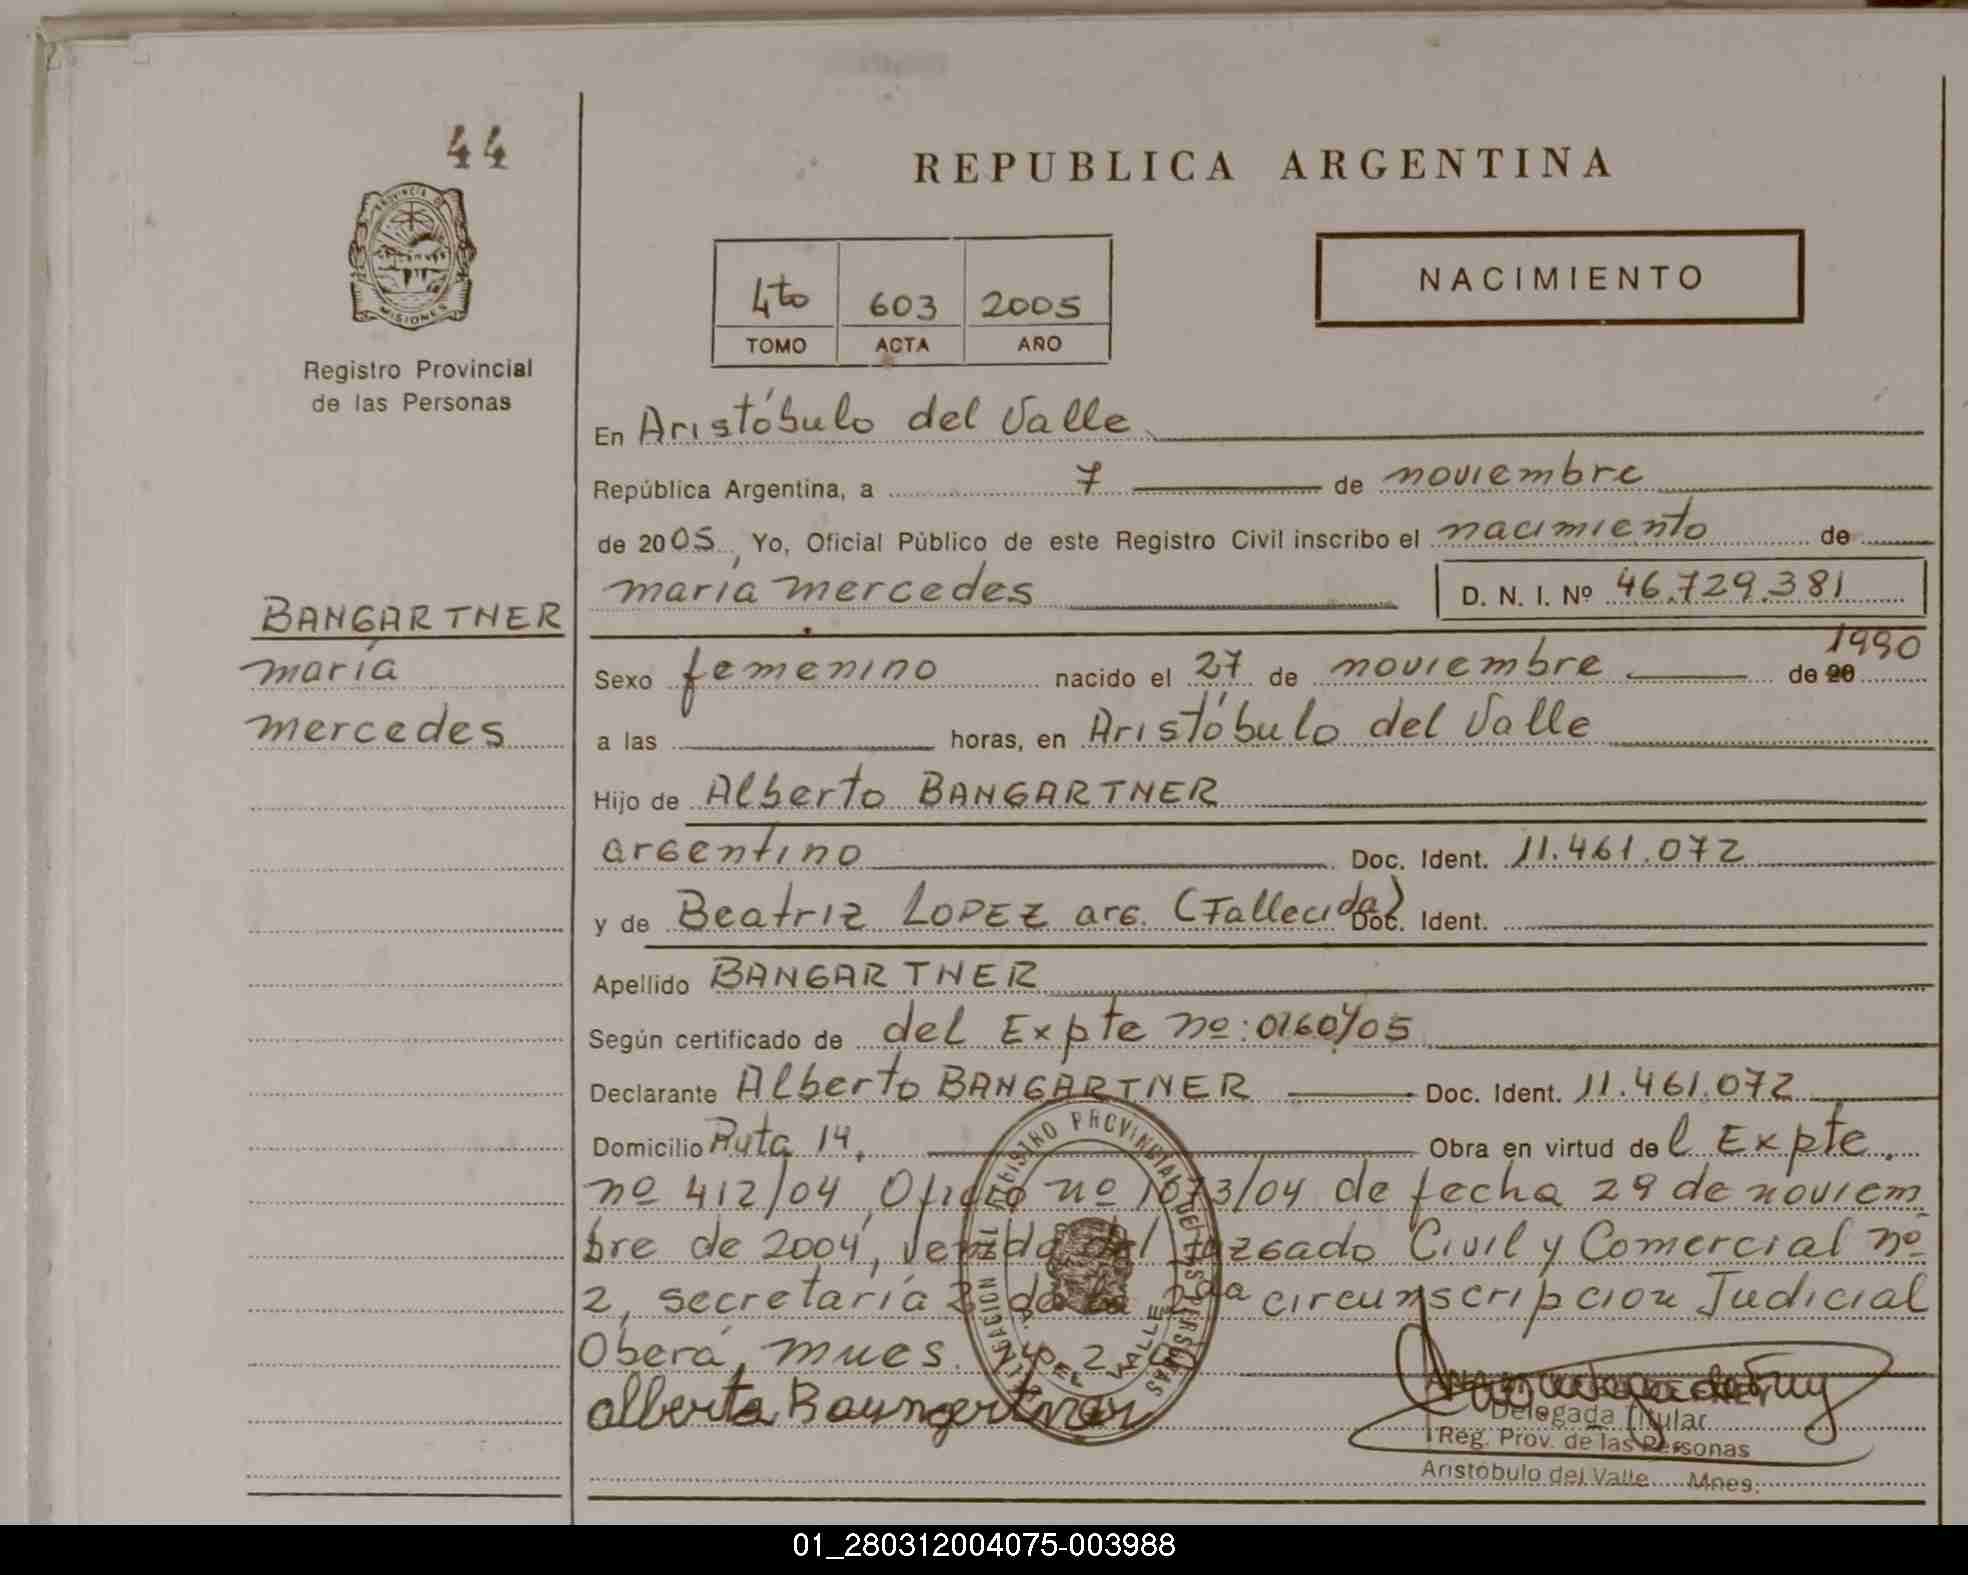 44
REPUBLICA ARGENTINA
PROVINCIA DE
MISIONES
Registro Provincial
de las Personas
4to 603 2005
TOMO ACTA AÑO
NACIMIENTO
En Aristóbulo del Valle
República Argentina, a 7 de noviembre
de 2005, Yo, Oficial Público de este Registro Civil inscribo el nacimiento de
maría mercedes D. N. I. Nº 46.729.381
BANGARTNER
maría
mercedes
Sexo femenino nacido el 27 de noviembre de 20 1990
a las horas, en Aristóbulo del Valle
Hijo de Alberto BANGARTNER
argentino Doc. Ident. 11.461.072
y de Beatriz LOPEZ arg. (Fallecida) Doc. Ident.
Apellido BANGARTNER
Según certificado de del Expte nº: 0160/05
Declarante Alberto BANGARTNER Doc. Ident. 11.461.072
Domicilio Ruta 14, Obra en virtud del Expte.
nº 412/04, Oficio nº 1673/04 de fecha 29 de noviem
bre de 2004, venido del Juzgado Civil y Comercial nº
2, secretaría 2 de la 2da circunscripcion Judicial
Oberá, mnes.
alberto Baungertner
REGISTRO PROVINCIAL DE LAS PERSONAS
DELEGACION DEL
A. DEL VALLE
Delegada Titular
Reg. Prov. de las Personas
Aristóbulo del Valle Mnes.
01_280312004075-003988